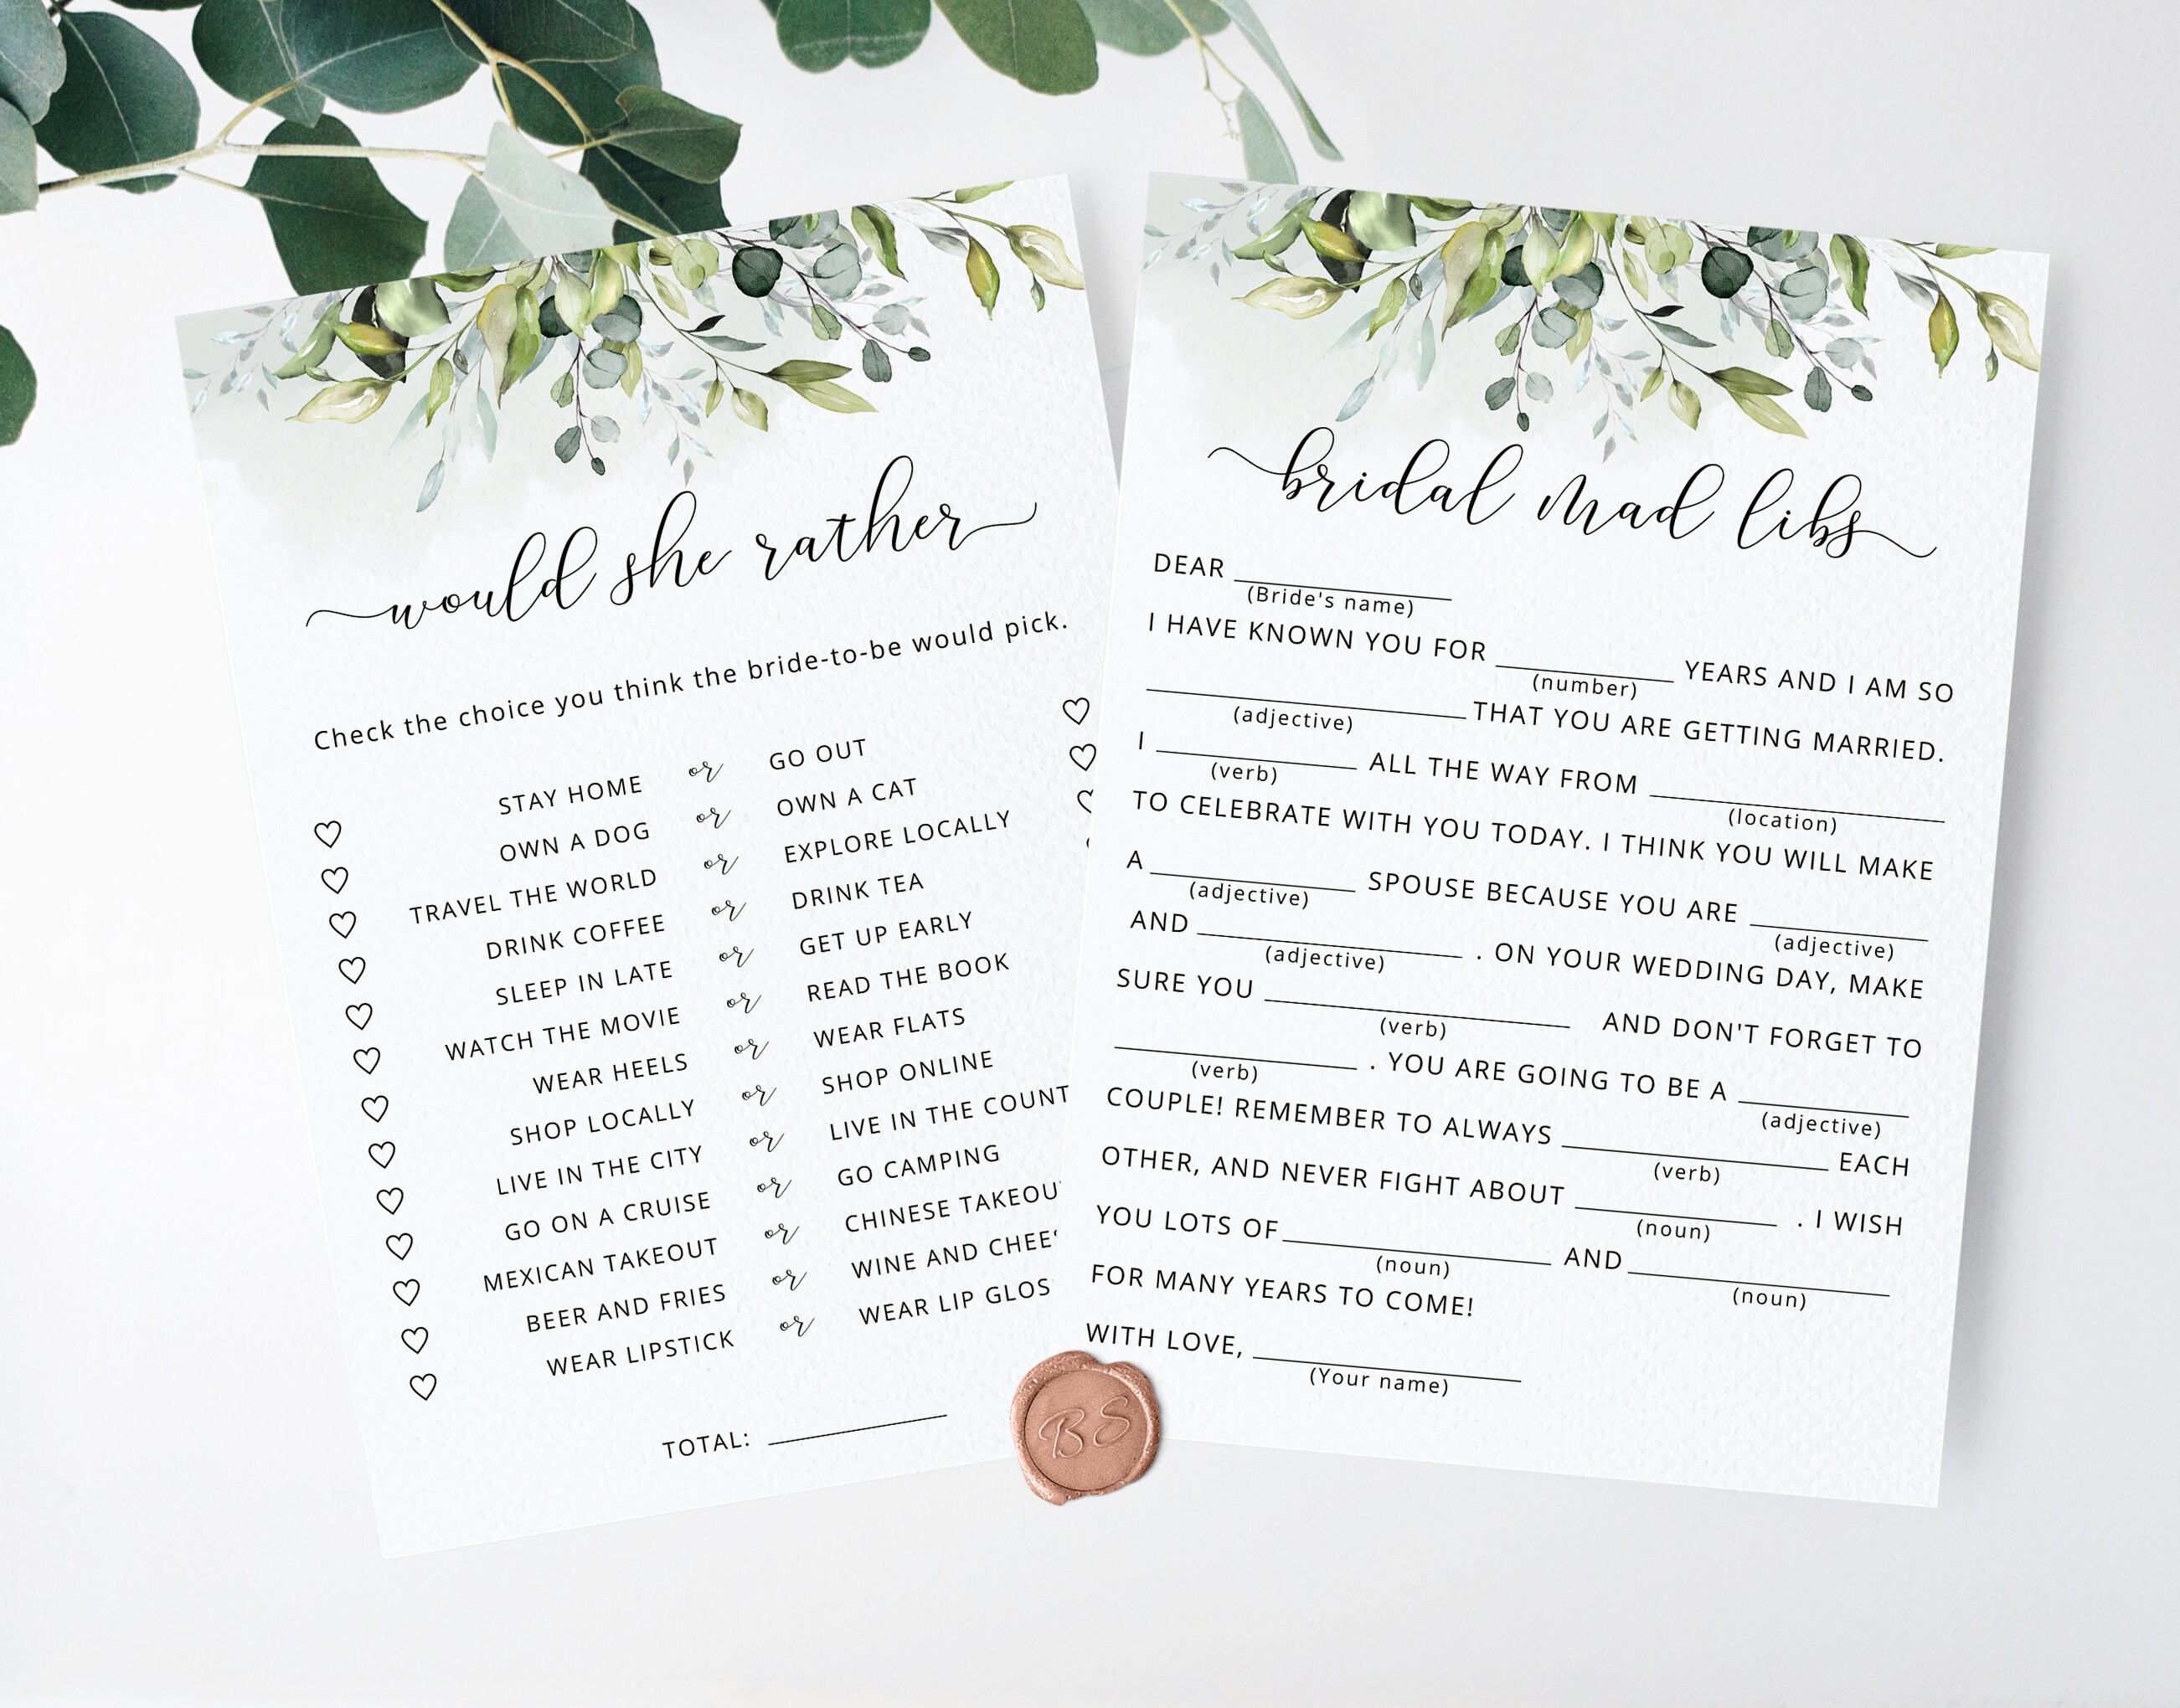 would she rather
Check the choice you think the bride-to-be would pick.
STAY HOME or GO OUT
OWN A DOG or OWN A CAT
TRAVEL THE WORLD or EXPLORE LOCALLY
DRINK COFFEE or DRINK TEA
SLEEP IN LATE or GET UP EARLY
WATCH THE MOVIE or READ THE BOOK
WEAR HEELS or WEAR FLATS
SHOP LOCALLY or SHOP ONLINE
LIVE IN THE CITY or LIVE IN THE COUNT
GO ON A CRUISE or GO CAMPING
MEXICAN TAKEOUT or CHINESE TAKEOU
BEER AND FRIES or WINE AND CHEE
WEAR LIPSTICK or WEAR LIP GLOS
TOTAL:
bridal mad libs
DEAR
(Bride's name)
I HAVE KNOWN YOU FOR YEARS AND I AM SO
(number)
THAT YOU ARE GETTING MARRIED.
(adjective)
I ALL THE WAY FROM
(verb) (location)
TO CELEBRATE WITH YOU TODAY. I THINK YOU WILL MAKE
A SPOUSE BECAUSE YOU ARE
(adjective) (adjective)
AND . ON YOUR WEDDING DAY, MAKE
(adjective)
SURE YOU AND DON'T FORGET TO
(verb)
. YOU ARE GOING TO BE A
(verb) (adjective)
COUPLE! REMEMBER TO ALWAYS EACH
(verb)
OTHER, AND NEVER FIGHT ABOUT . I WISH
(noun)
YOU LOTS OF AND
(noun) (noun)
FOR MANY YEARS TO COME!
WITH LOVE,
(Your name)
BS